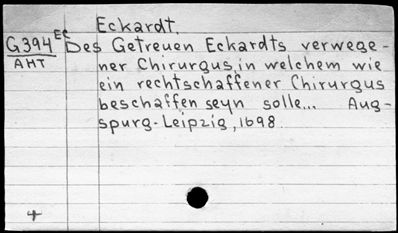 Eckardt.
G394 EC Des Getreuen Eckardts verwege-
AHT ner Chirurgus, in welchem wie
ein rechtschaffener Chirurgus
beschaffen seyn solle... Aug-
spurg-Leipzig, 1698.
4